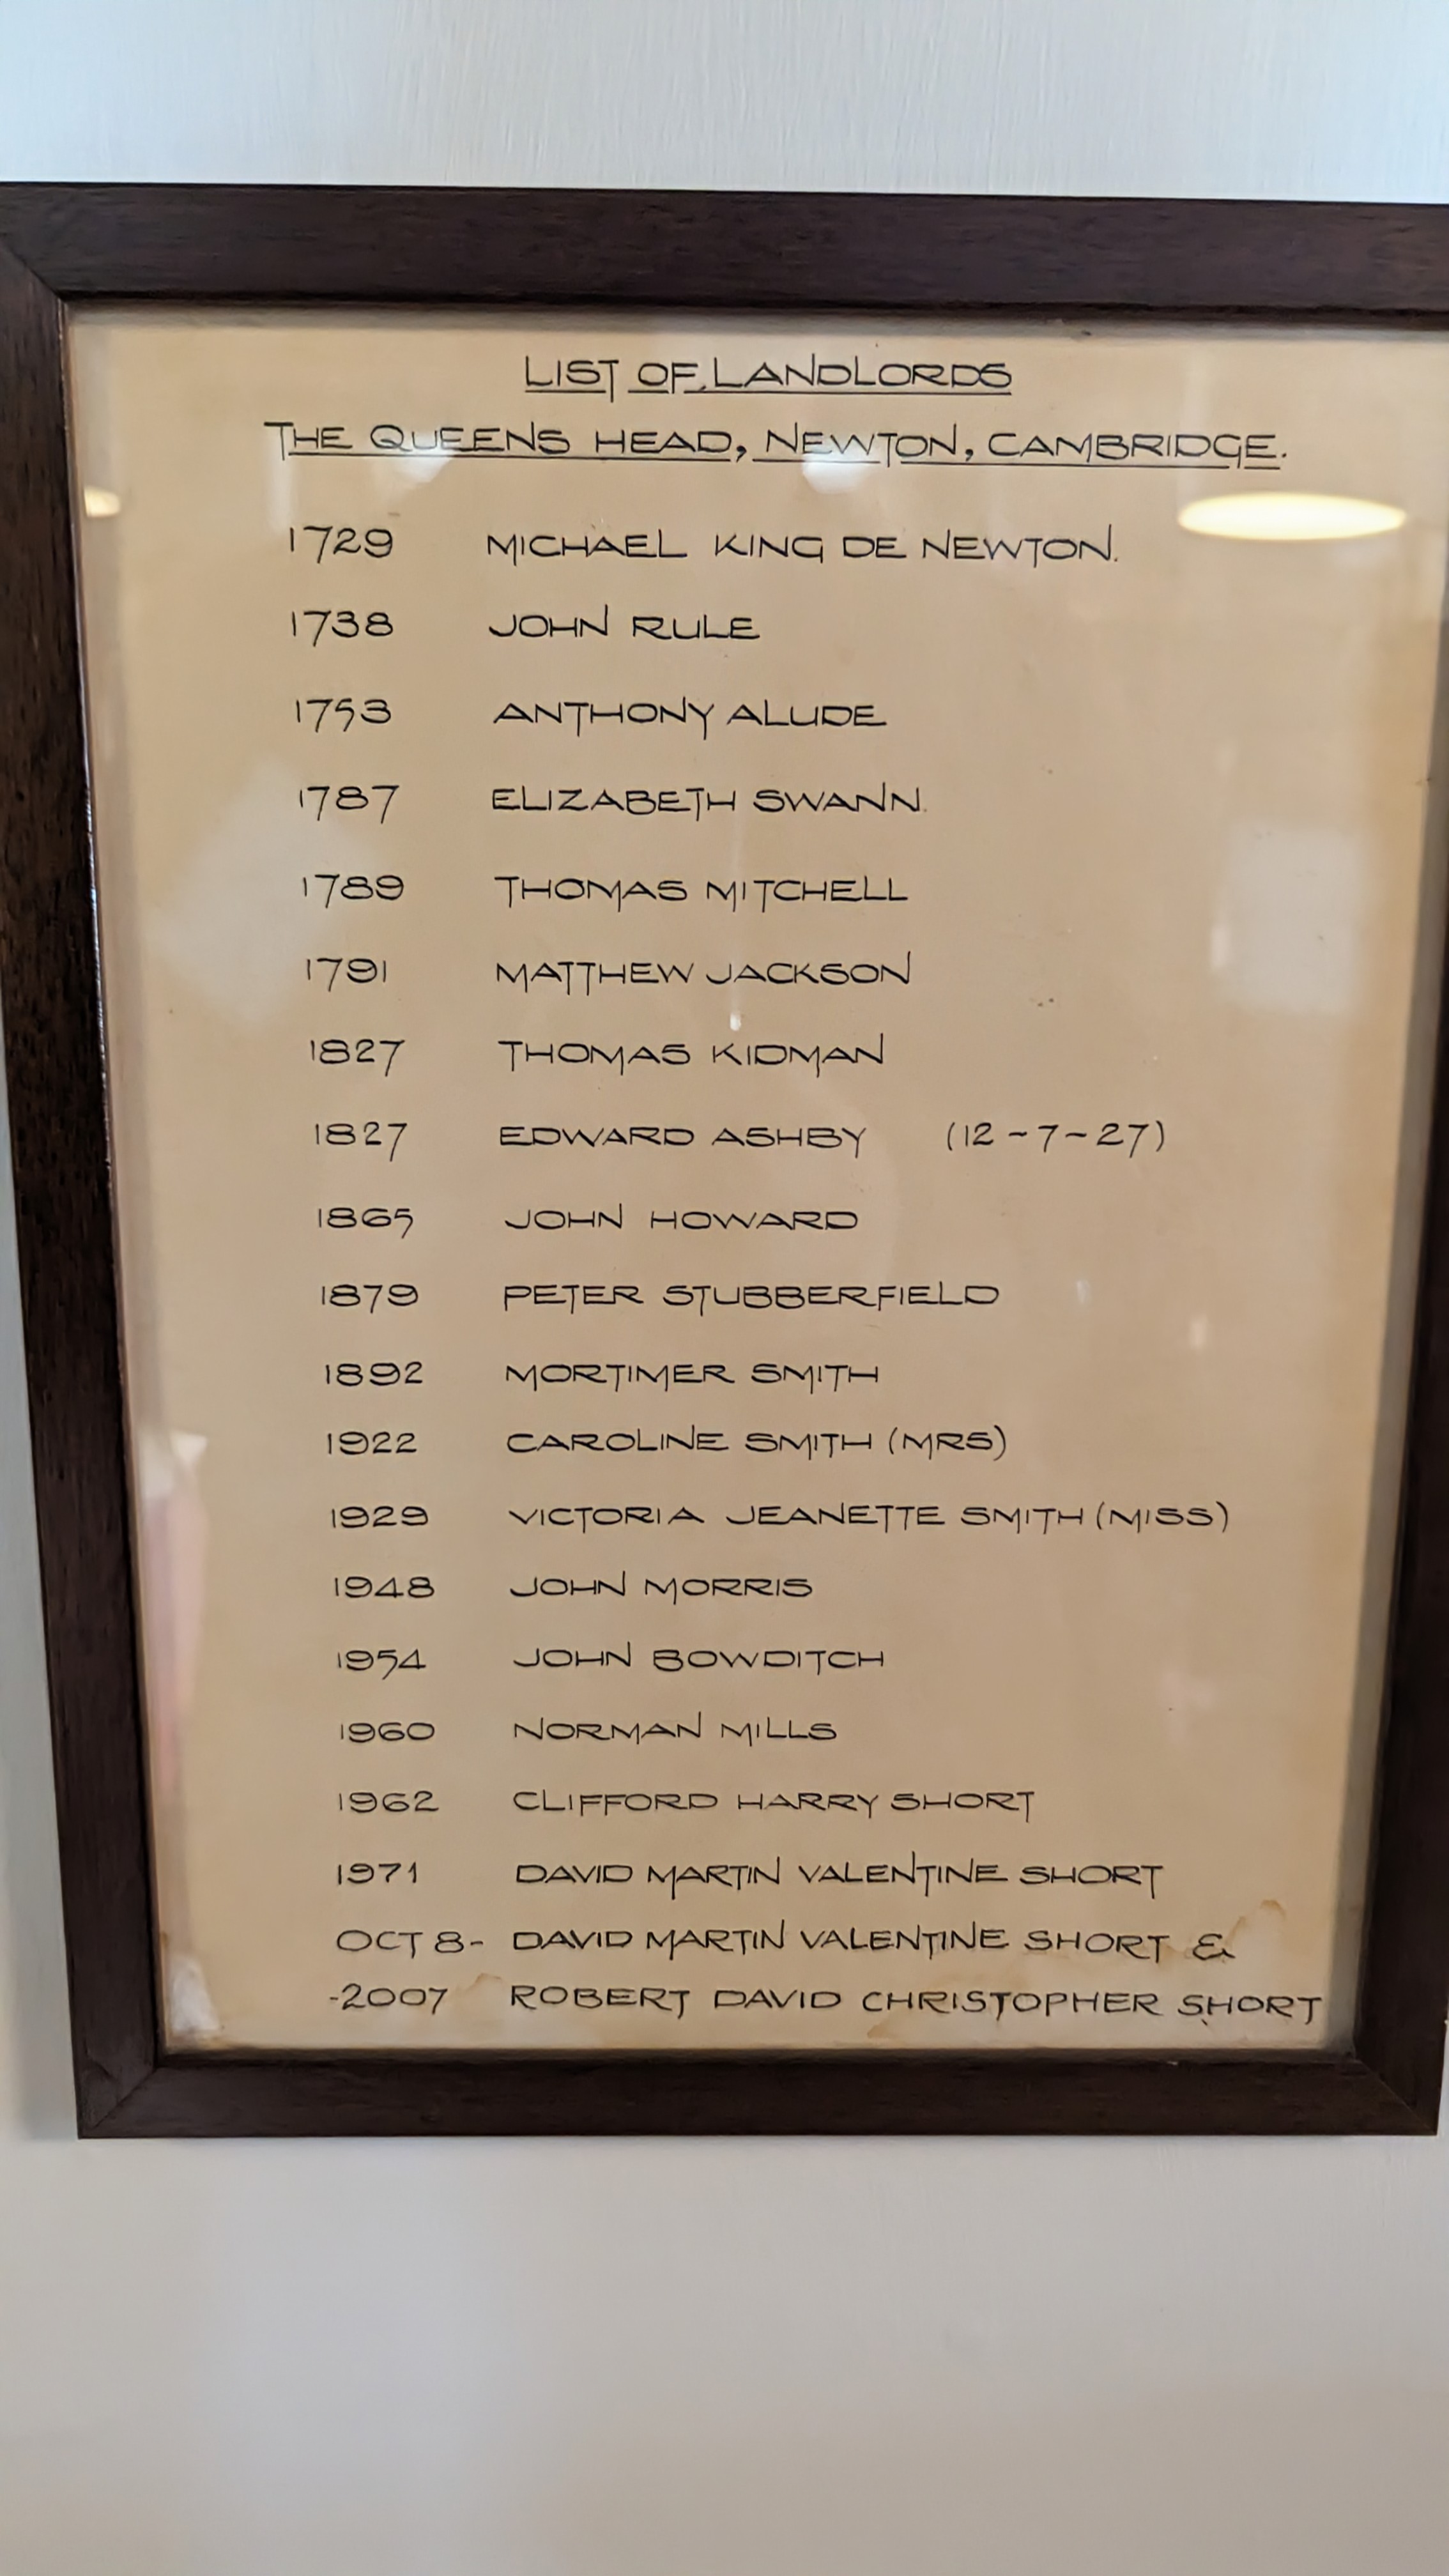 LIST OF LANDLORDS
THE QUEENS HEAD, NEWTON, CAMBRIDGE.
1729 MICHAEL KING DE NEWTON.
1738 JOHN RULE
1753 ANTHONY ALUDE
1787 ELIZABETH SWANN.
1789 THOMAS MITCHELL
1791 MATTHEW JACKSON
1827 THOMAS KIDMAN
1827 EDWARD ASHBY (12-7-27)
1865 JOHN HOWARD
1879 PETER STUBBERFIELD
1892 MORTIMER SMITH
1922 CAROLINE SMITH (MRS)
1929 VICTORIA JEANETTE SMITH (MISS)
1948 JOHN MORRIS
1954 JOHN BOWDITCH
1960 NORMAN MILLS
1962 CLIFFORD HARRY SHORT
1971 DAVID MARTIN VALENTINE SHORT
OCT 8- DAVID MARTIN VALENTINE SHORT &
-2007 ROBERT DAVID CHRISTOPHER SHORT